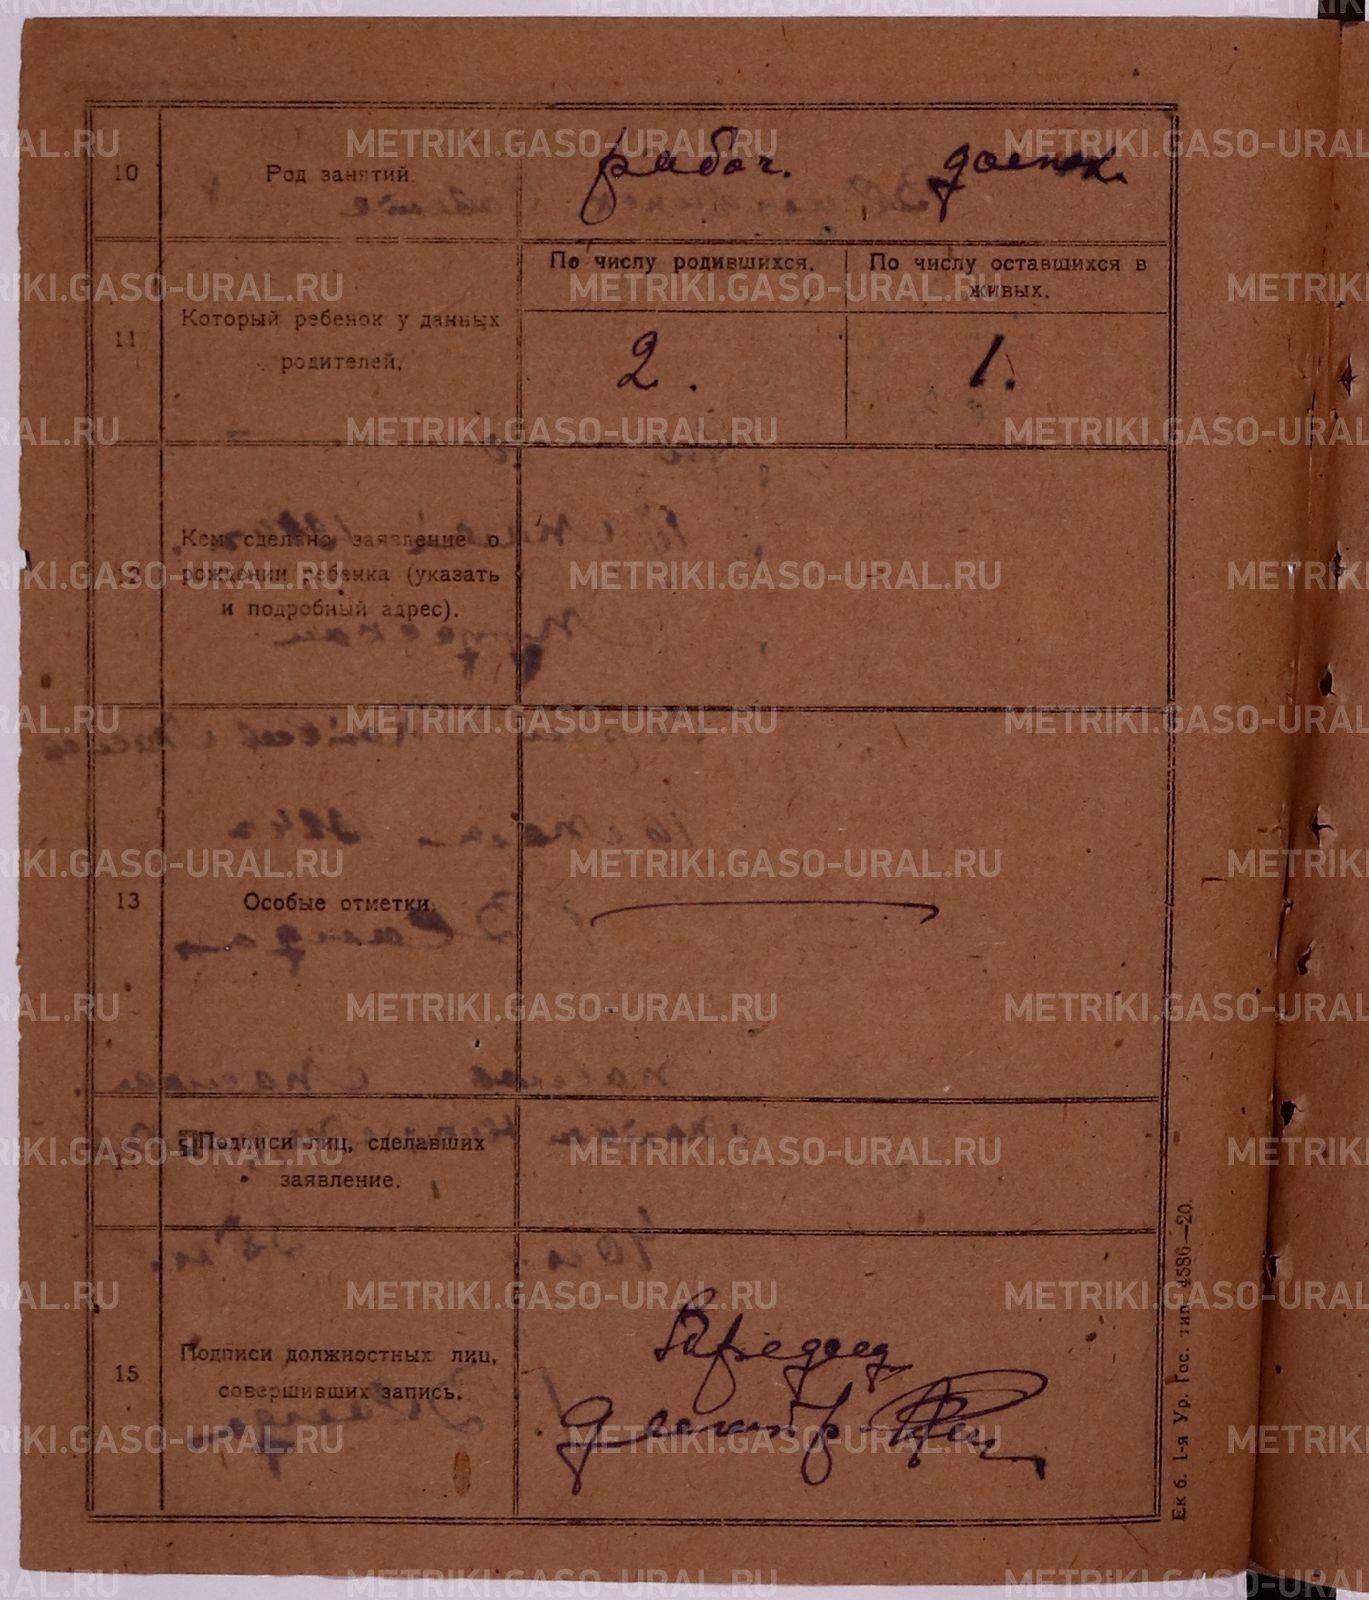 10
Род занятий.
рабоч. домохоз.
11
Который ребенок у данных
родителей.
По числу родившихся.
По числу оставшихся в
живых.
2.
1.
12
Кем сделано заявление о
рождении ребенка (указать
и подробный адрес).
13
Особые отметки.
14
Подписи лиц, сделавших
заявление.
15
Подписи должностных лиц,
совершивших запись.
Ек б. 1-я Ур. Гос. тип. 4586—20.
METRIKI.GASO-URAL.RU